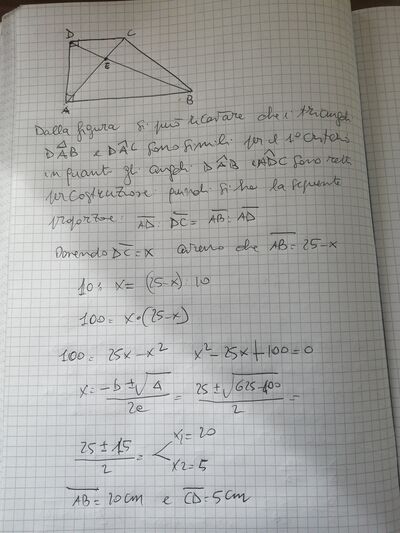 D C
E
A B
Dalla figura si può ricavare che i triangoli
DAB e DAC sono simili per il 1° criterio
in quanto gli angoli DÂB e ADC sono retti
per costruzione quindi si ha la seguente
proporzione: AD : DC = AB : AD
Ponendo DC = x avremo che AB = 25 - x
10 : x = (25-x) : 10
100 = x·(25-x)
100 = 25x - x² x² - 25x + 100 = 0
x = -b ± √Δ / 2a = 25 ± √625-400 / 2 =
25 ± 15 / 2 = x1 = 20
x2 = 5
AB = 20cm e CD = 5cm